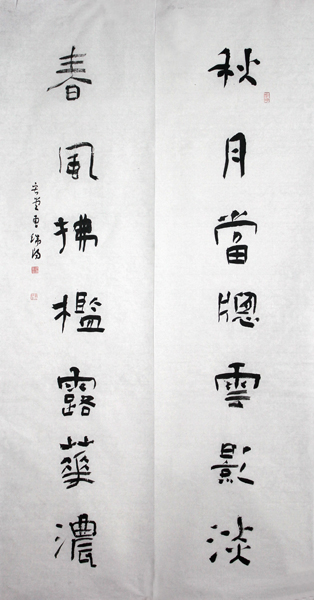 秋月當牎雲影淡
春風拂檻露華濃